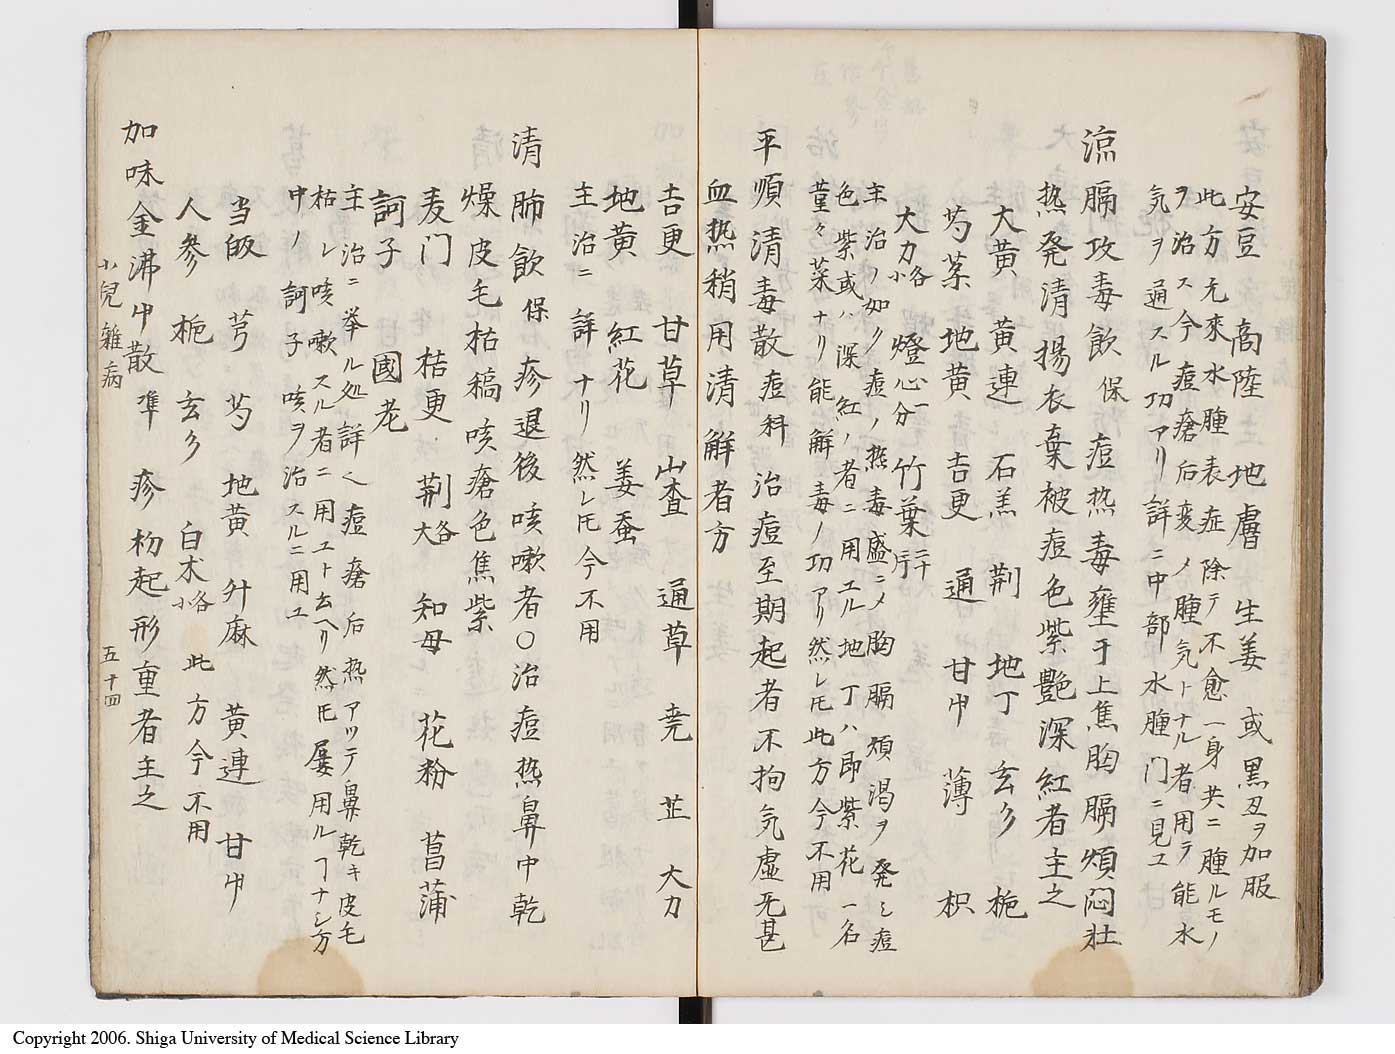 安豆 商陸 地膚 生姜 或黒丑ヲ加服
此方元來水腫表症除テ不愈一身共ニ腫ルモノ
ヲ治ス今痘瘡后変ノ腫気トナル者用ラ能水
気ヲ通スル功アリ詳ニ中部水腫门ニ見ユ
涼膈攻毒飲 保 痘热毒壅于上焦胸膈煩悶壮
热発清揚衣棄被痘色紫艶深紅者主之
大黄 黄連 石羔 荆 地丁 玄参 梔
芍 茶 地黄 吉更 通 甘中 薄 枳
大力 各小 燈心 一分 竹葉 二十片
主治ノ如ク痘ノ热毒盛ニメ胸膈煩渇ヲ発シ痘
色紫或ハ深紅ノ者ニ用エル地丁ハ即紫花一名
菫々菜ナリ能解毒ノ功アリ然レ𪜈此方今不用
平順清毒散 痘科 治痘至期起者不拘気虚无甚
血热稍用清解者方
吉更 甘草 山査 通草 尭 芷 大力
地黄 紅花 姜蚕
主治ニ詳ナリ然レ𪜈今不用
清肺飲 保 疹退後咳嗽者○治痘热鼻中乾
燥皮毛枯稿咳瘡色焦紫
麦门 桔更 荆 各大 知母 花粉 菖蒲
訶子 國老
主治ニ挙ル処詳ヘ痘瘡后热アツテ鼻乾キ皮毛
枯レ咳嗽スル者ニ用ユト云ヘリ然𪜈屡用ルヿナシ方
中ノ訶子咳ヲ治スルニ用ユ
加味金沸中散 準 疹初起形重者主之
当皈 芎 芍 地黄 升麻 黄連 甘中
人参 梔 玄参 白朮 各小 此方今不用
小兒雜病 五十四
Copyright 2006. Shiga University of Medical Science Library